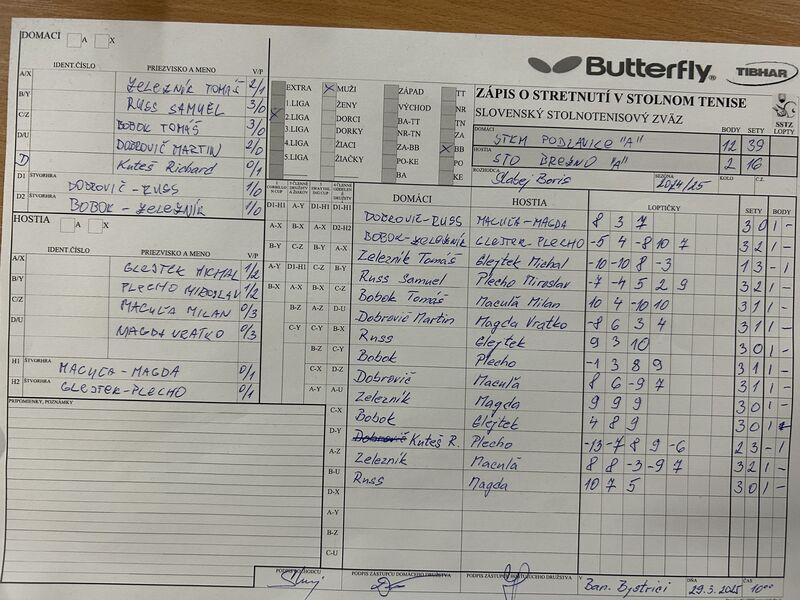 DOMACI A X
IDENT.ČÍSLO PRIEZVISKO A MENO V/P
A/X ŽELEZNÍK TOMÁŠ 2/1
B/Y RUSS SAMUEL 3/0
C/Z BOBOK TOMÁŠ 3/0
D/U DOBROVIČ MARTIN 2/0
D Kuteš Richard 0/1
D1 ŠTVORHRA DOBROVIČ-RUSS 1/0
D2 BOBOK-ŽELEZNÍK 1/0
HOSTIA A X
IDENT.ČÍSLO PRIEZVISKO A MENO V/P
A/X GLEJTEK MICHAL 1/2
B/Y PLECHO MIROSLAV 1/2
C/Z MACUĽA MILAN 0/3
D/U MAGDA VRATKO 0/3
H1 ŠTVORHRA MACUĽA-MAGDA 0/1
H2 ŠTVORHRA GLEJTEK-PLECHO 0/1
PRIPOMIENKY, POZNÁMKY
EXTRA
1.LIGA
2.LIGA
3.LIGA
4.LIGA
5.LIGA
X MUŽI
ŽENY
DORCI
DORKY
ŽIACI
ŽIAČKY
ZÁPAD
VÝCHOD
BA-TT
NR-TN
ZA-BB
PO-KE
BA
TT
NR
TN
ZA
X BB
PO
KE
Butterfly
TIBHAR
ZÁPIS O STRETNUTÍ V STOLNOM TENISE
SLOVENSKÝ STOLNOTENISOVÝ ZVÄZ
SSTZ
BODY SETY LOPTY
DOMÁCI STKM PODLAVICE "A" 12 39
HOSTIA STO BREZNO "A" 2 16
ROZHODCA Slabej Boris SEZÓNA 2024/25 KOLO Č.Z.
DOMÁCI HOSTIA LOPTIČKY SETY BODY
D1-H1 DOBROVIČ-RUSS MACUĽA-MAGDA 8 3 7 3 0 1 -
D2-H2 BOBOK-ŽELEZNÍK GLEJTEK-PLECHO -5 4 -8 10 7 3 2 1 -
A-X Železník Tomáš Glejtek Michal -10 -10 8 -3 1 3 - 1
B-Y Russ Samuel Plecho Miroslav -7 -4 5 2 9 3 2 1 -
C-Z Bobok Tomáš Maculá Milan 10 4 -10 10 3 1 1 -
D-U Dobrovič Martin Magda Vratko -8 6 3 4 3 1 1 -
B-X Russ Glejtek 9 3 10 3 0 1 -
C-Y Bobok Plecho -1 3 8 9 3 1 1 -
D-Z Dobrovič Maculá 8 6 -9 7 3 1 1 -
A-U Železník Magda 9 9 9 3 0 1 -
C-X Bobok Glejtek 4 8 9 3 0 1 -
D-Y Dobrovič Kuteš R. Plecho -13 -7 8 9 -6 2 3 - 1
A-Z Železník Maculá 8 8 -3 -9 7 3 2 1 -
B-U Russ Magda 10 7 5 3 0 1 -
D-X
A-Y
B-Z
C-U
PODPIS ROZHODCU PODPIS ZÁSTUPCU DOMÁCEHO DRUŽSTVA PODPIS ZÁSTUPCU HOSŤUJÚCEHO DRUŽSTVA V Ban. Bystrici DŇA 29.3.2025 ČAS 10⁰⁰